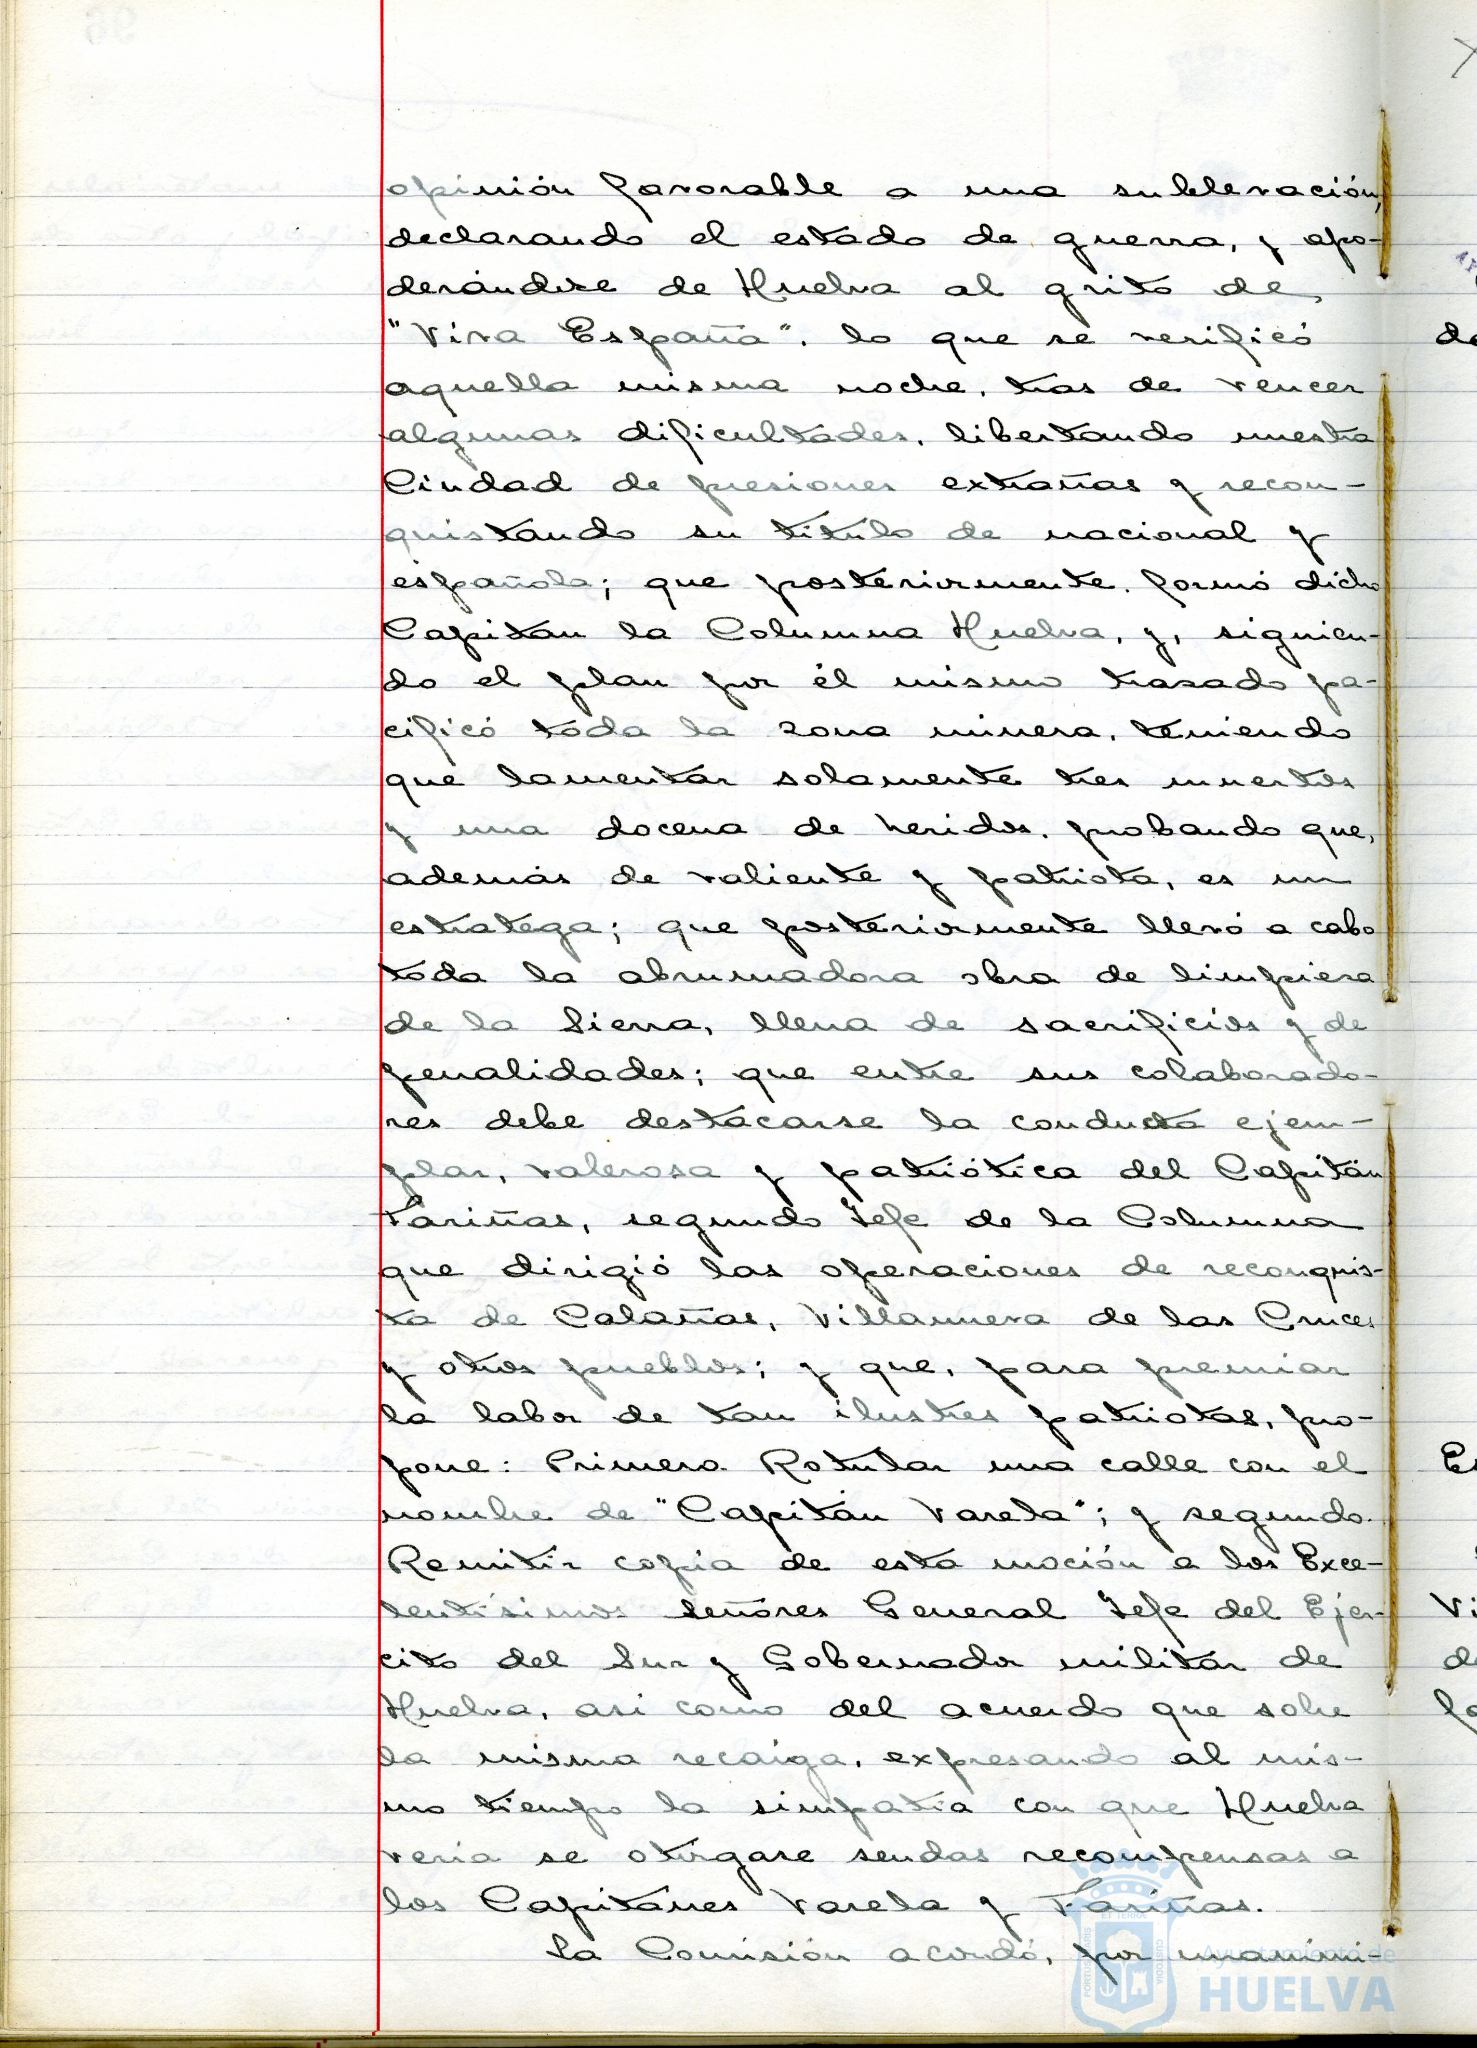 opinión favorable a una sublevación,
declarando el estado de guerra, y apo-
derándose de Huelva al grito de
"Viva España", lo que se verificó
aquella misma noche, tras de vencer
algunas dificultades, libertando nuestra
Ciudad de presiones extrañas y recon-
quistando su título de nacional y
española; que posteriormente, formó dicho
Capitan la Columna Huelva, y, siguien-
do el plan por él mismo trazado pa-
cificó toda la zona minera, teniendo
que lamentar solamente tres muertos
y una docena de heridos, probando que,
además de valiente y patriota, es un
estratega; que posteriormente llevó a cabo
toda la abrumadora obra de limpieza
de la Sierra, llena de sacrificios y de
penalidades; que entre sus colaborado-
res debe destacarse la conducta ejem-
plar, valerosa y patriótica del Capitán
Fariñas, segundo Jefe de la Columna
que dirigió las operaciones de reconquis-
ta de Calañas, Villanueva de las Cruces
y otros pueblos; y que, para premiar
la labor de tan ilustres patriotas, pro-
pone: Primero. Rotular una calle con el
nombre de "Capitán Varela"; y segundo.
Remitir copia de esta moción a los Exce-
lentísimos Señores General Jefe del Ejér-
cito del Sur y Gobernador militar de
Huelva, asi como del acuerdo que sobre
la misma recaiga, expresando al mis-
mo tiempo la simpatia con que Huelva
veria se otorgase sendas recompensas a
los Capitanes Varela y Fariñas.
La Comisión acordó, por unanimi-
Ayuntamiento de
HUELVA